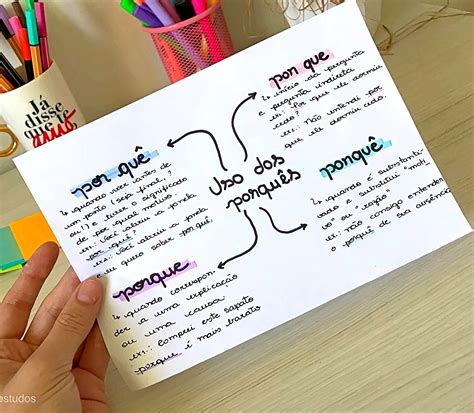 Já
disse
que te
amo
Uso dos
porquês
por quê
↳ quando vier antes de
um ponto (seja final, ?
ou !) e tiver o significado
de por qual motivo
ex: Você abriu a janela
por quê?
ex2: Você abriu a janela
e eu quero saber por quê.
por que
↳ início da pergunta
e pergunta indireta
ex: Por que ele dormiu
cedo?
ex: Não entendi por
que ele dormiu cedo.
porque
↳ quando correspon-
der a uma explicação
ou uma causa
ex: Comprei este sapato
porque é mais barato
porquê
↳ quando é substanti-
vado e substitui "moti-
vo" ou "razão"
ex: não consigo entender
o porquê de sua ausência
estudos